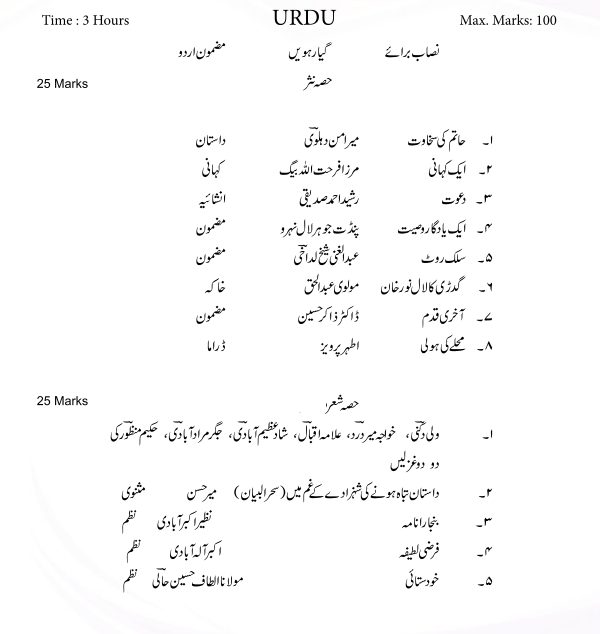 Time : 3 Hours URDU Max. Marks: 100
نصاب برائے گیارہویں مضمون اردو
25 Marks حصہ نثر
۱۔ حاتم کی سخاوت میرامن دہلوی داستان
۲۔ ایک کہانی مرزا فرحت اللہ بیگ کہانی
۳۔ دعوت رشید احمد صدیقی انشائیہ
۴۔ ایک یادگار وصیت پنڈت جو ہر لال نہرو مضمون
۵۔ سلک روٹ عبدالغنی شیخ لداخی مضمون
۶۔ گدڑی کا لال نور خان مولوی عبدالحق خاکہ
۷۔ آخری قدم ڈاکٹر ذاکر حسین مضمون
۸۔ محلے کی ہولی اطہر پرویز ڈراما
25 Marks حصہ شعر
۱۔ ولی دکنی، خواجہ میر درد، علامہ اقبال، شاد عظیم آبادی، جگر مراد آبادی، حکیم منظور کی
دو دو غزلیں
۲۔ داستان تباہ ہونے کی شہزادے کے غم میں (سحرالبیان) میر حسن مثنوی
۳۔ بنجارا نامہ نظیر اکبر آبادی نظم
۴۔ فرضی لطیفہ اکبر آلہ آبادی نظم
۵۔ خودستائی مولانا الطاف حسین حالی نظم